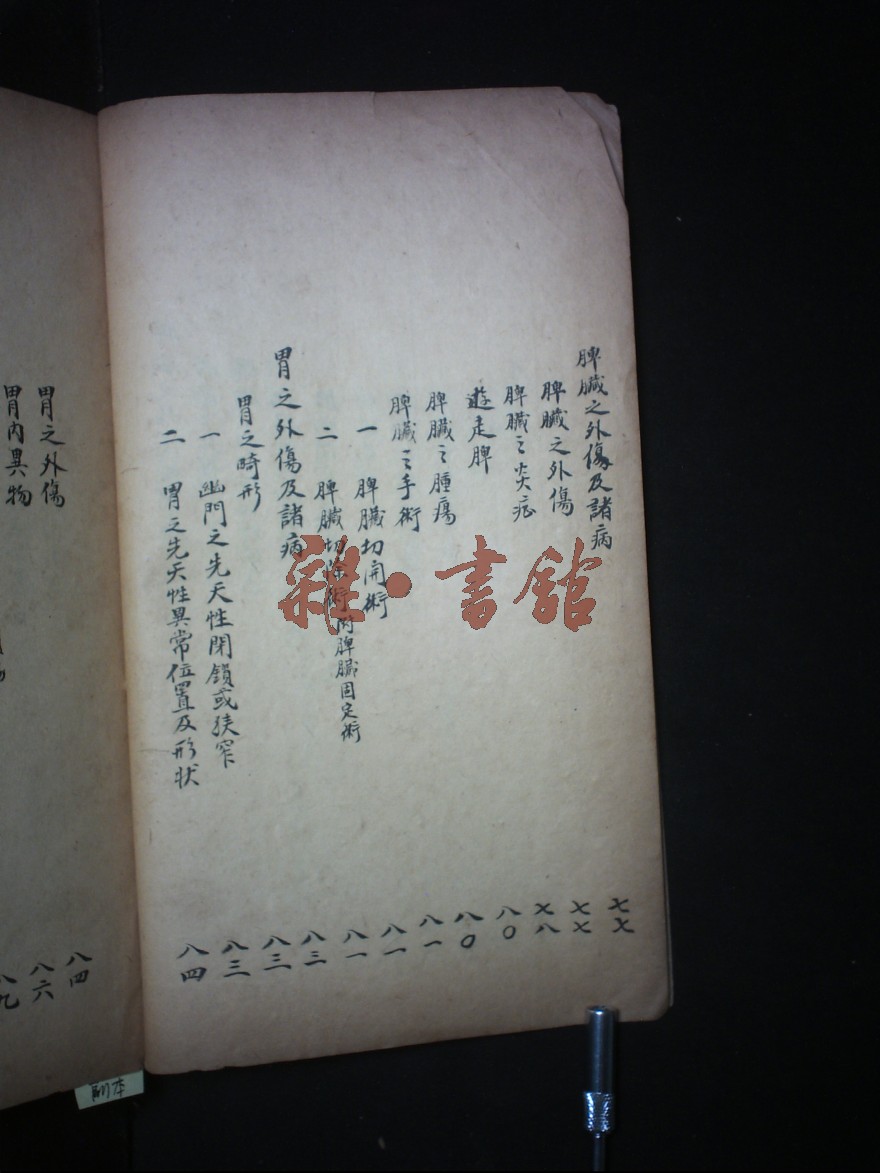 脾臟之外傷及諸病 七七
脾臟之外傷 七七
脾臟之炎症 七八
遊走脾 八〇
脾臟之腫瘍 八〇
脾臟之手術 八一
一 脾臟切開術 八一
二 脾臟切除術附脾臟固定術 八一
胃之外傷及諸病 八三
胃之畸形 八三
一 幽門之先天性閉鎖或狹窄 八三
二 胃之先天性異常位置及形状 八四
胃之外傷 八四
胃内異物 八六
八九
雜·書館
副本